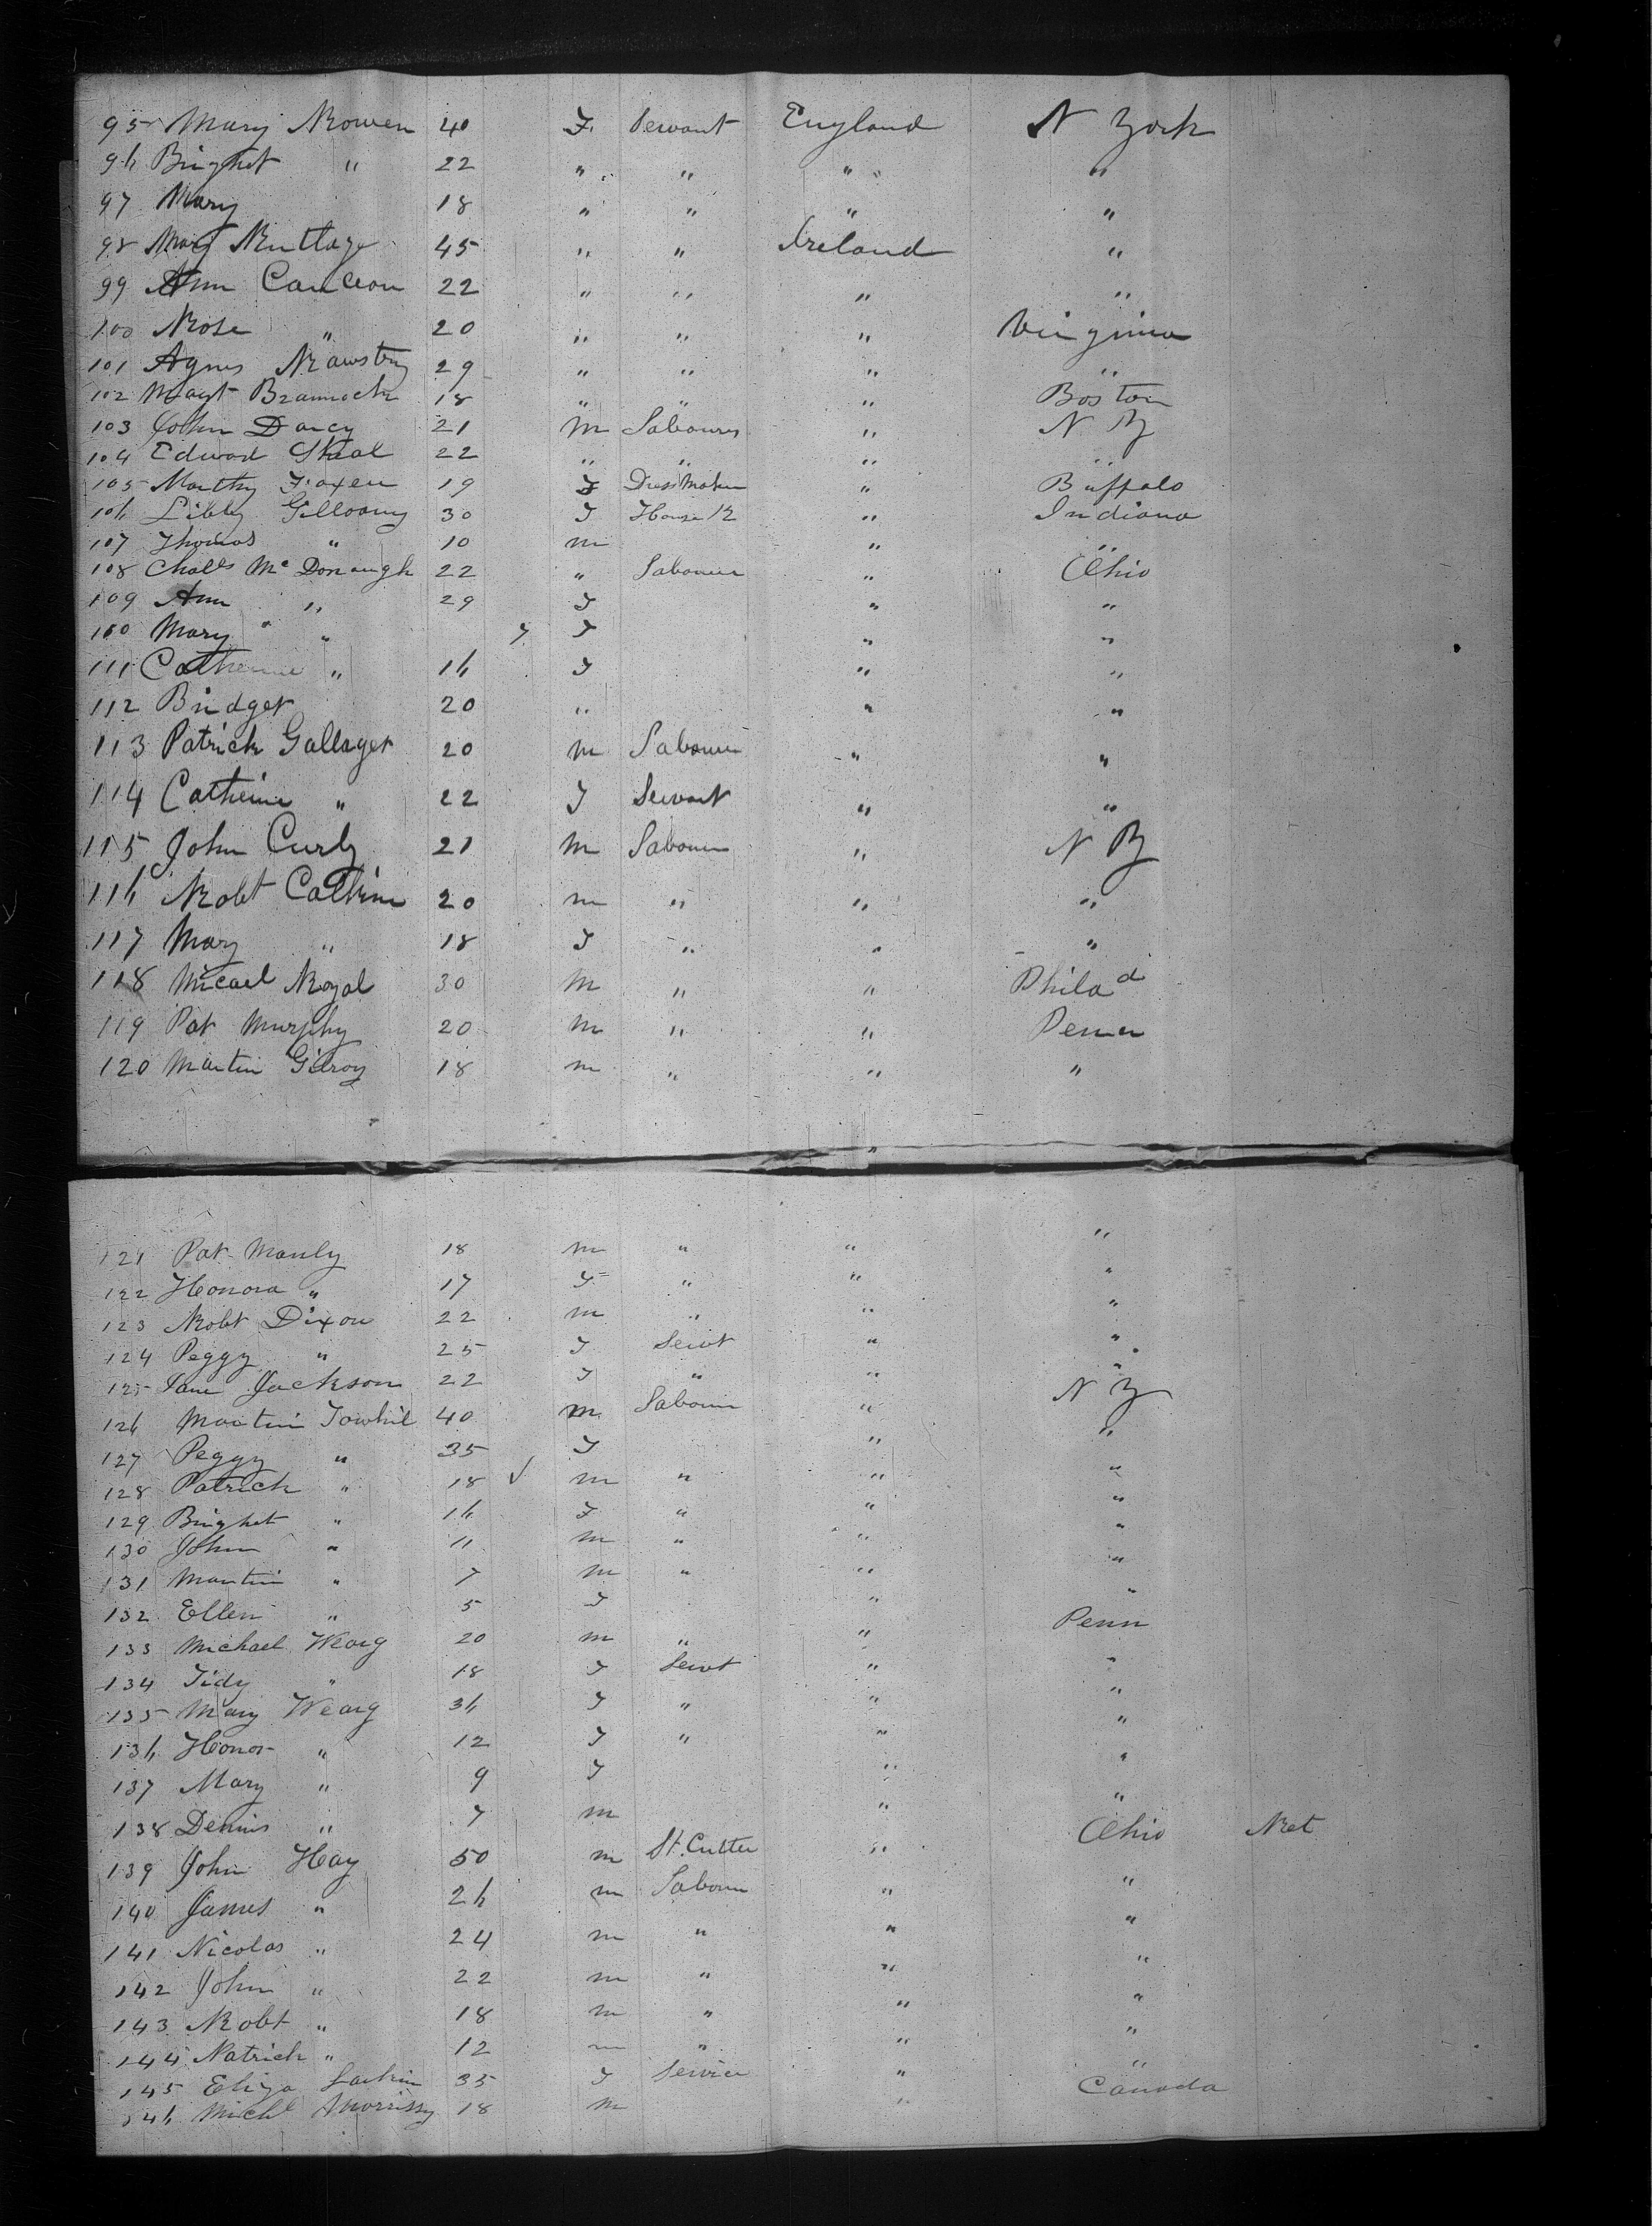 95 Mary Rowen 40 F Servant England N York
96 Brighet " 22 " " " "
97 Mary 18 " " " "
98 Mary Rutlage 45 " " Ireland "
99 Ann 22 " " " "
100 Rose " 20 " " " Virginia
101 Agnes 29 " " " "
102 Magt 18 " " " Boston
103 John Darcy 21 m Labourer " N Y
104 Edward 22 " " " "
105 19 F Dressmaker " Buffalo
106 Libby Gilloony 30 F House K " Indiana
107 Thomas " 10 m " "
108 Chales Mc Donaugh 22 " Labourer " Ohio
109 Ann " 29 F " "
110 Mary " 7 F " "
111 Catherine " 16 F " "
112 Bridget 20 " " "
113 Patrick Gallager 20 m Labourer " "
114 Catherine " 22 F Servant " "
115 John Curly 21 m Labourer " N Y
116 Robt 20 m " " "
117 Mary " 18 F " " "
118 Micael Royal 30 m " " Philad
119 Pat Murphy 20 m " " Penn
120 Martin Gilroy 18 m " " "
121 Pat Manly 18 m " " "
122 Honora " 17 F " " "
123 Robt Dixon 22 m " " "
124 Peggy " 25 F Servt " "
125 Jane Jackson 22 F " " "
126 Martin Towhil 40 m Labourer " N Y
127 Peggy " 35 F " "
128 Patrick " 18 √ m " " "
129 Brighet " 16 F " " "
130 John " 11 m " " "
131 Martin " 7 m " " "
132 Ellen " 5 F " "
133 Michael Wearg 20 m " " Penn
134 Tidy " 18 F Servt " "
135 Mary Wearg 36 F " " "
136 Honor " 12 F " " "
137 Mary " 9 F " "
138 Dennis " 7 m " "
139 John Hay 50 m St. Cutter " Ohio Ret
140 James " 26 m Labour " "
141 Nicolas " 24 m " " "
142 John " 22 m " " "
143 Robt " 18 m " " "
144 Patrick " 12 m " " "
145 Eliza Larkin 35 F Service " "
146 Michl Morrissy 18 m " Canada